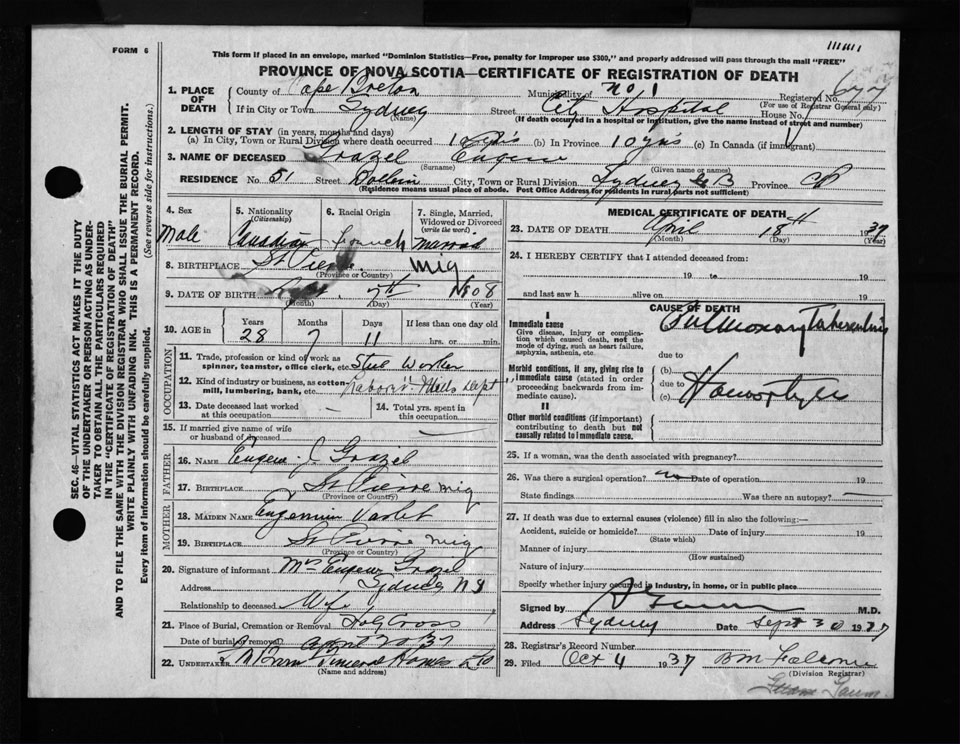 FORM 6
This form if placed in an envelope, marked "Dominion Statistics—Free, penalty for improper use $300," and properly addressed will pass through the mail "FREE"
PROVINCE OF NOVA SCOTIA—CERTIFICATE OF REGISTRATION OF DEATH
SEC. 46—VITAL STATISTICS ACT MAKES IT THE DUTY
OF THE UNDERTAKER OR PERSON ACTING AS UNDER-
TAKER TO OBTAIN ALL THE PARTICULARS REQUIRED
IN THE "CERTIFICATE OF REGISTRATION OF DEATH"
AND TO FILE THE SAME WITH THE DIVISION REGISTRAR WHO SHALL ISSUE THE BURIAL PERMIT.
WRITE PLAINLY WITH UNFADING INK. THIS IS A PERMANENT RECORD.
Every item of information should be carefully supplied. (See reverse side for instructions.)
1. PLACE OF DEATH
County of Cape Breton Municipality of No 1 Registered No. 1677
(For use of Registrar General only)
If in City or Town Sydney Street City Hospital House No.
(Name) (If death occurred in a hospital or institution, give the name instead of street and number)
2. LENGTH OF STAY (in years, months and days)
(a) In City, Town or Rural Division where death occurred (b) In Province 10 yrs (c) In Canada (if immigrant)
3. NAME OF DECEASED Grazel Eugene
(Surname) (Given name or names)
RESIDENCE No. 51 Street City, Town or Rural Division Sydney C B Province
(Residence means usual place of abode. Post Office Address for residents in rural parts not sufficient)
4. Sex Male
5. Nationality (Citizenship) Canadian
6. Racial Origin French
7. Single, Married, Widowed or Divorced (write the word) Married
8. BIRTHPLACE St Pierre Miq
(Province or Country)
9. DATE OF BIRTH Sept. 7th 1908
(Month) (Day) (Year)
10. AGE in Years 28 Months 7 Days 11 If less than one day old hrs. or min.
OCCUPATION
11. Trade, profession or kind of work as spinner, teamster, office clerk, etc. Steel Worker
12. Kind of industry or business, as cotton mill, lumbering, bank, etc. Labor Mills Dept
13. Date deceased last worked at this occupation —
14. Total yrs. spent in this occupation
15. If married give name of wife or husband of deceased —
FATHER
16. NAME Eugene J. Grazel
17. BIRTHPLACE St Pierre Miq
(Province or Country)
MOTHER
18. MAIDEN NAME Varlet
19. BIRTHPLACE St Pierre Miq
(Province or Country)
20. Signature of informant Mrs Eugene Grazel
Address Sydney N S
Relationship to deceased Wife
21. Place of Burial, Cremation or Removal Holy Cross
Date of burial or removal April 20/37
22. UNDERTAKER Ltd
(Name and address)
MEDICAL CERTIFICATE OF DEATH
23. DATE OF DEATH April 18th 1937
(Month) (Day) (Year)
24. I HEREBY CERTIFY that I attended deceased from:
19 to 19
and last saw h alive on 19
CAUSE OF DEATH
I
Immediate cause
Give disease, injury or complication which caused death, not the mode of dying, such as heart failure, asphyxia, asthenia, etc.
Pulmonary Tuberculosis
due to
Morbid conditions, if any, giving rise to immediate cause (stated in order proceeding backwards from immediate cause).
(b)
due to
(c)
II
Other morbid conditions (if important) contributing to death but not causally related to immediate cause.
25. If a woman, was the death associated with pregnancy?
26. Was there a surgical operation? no Date of operation 19
State findings Was there an autopsy? —
27. If death was due to external causes (violence) fill in also the following:—
Accident, suicide or homicide? Date of injury 19
(State which)
Manner of injury
(How sustained)
Nature of injury
Specify whether injury occurred in industry, in home, or in public place
Signed by M.D.
Address Sydney Date Sept 30 1937
28. Registrar's Record Number
29. Filed Oct 4 1937
(Division Registrar)